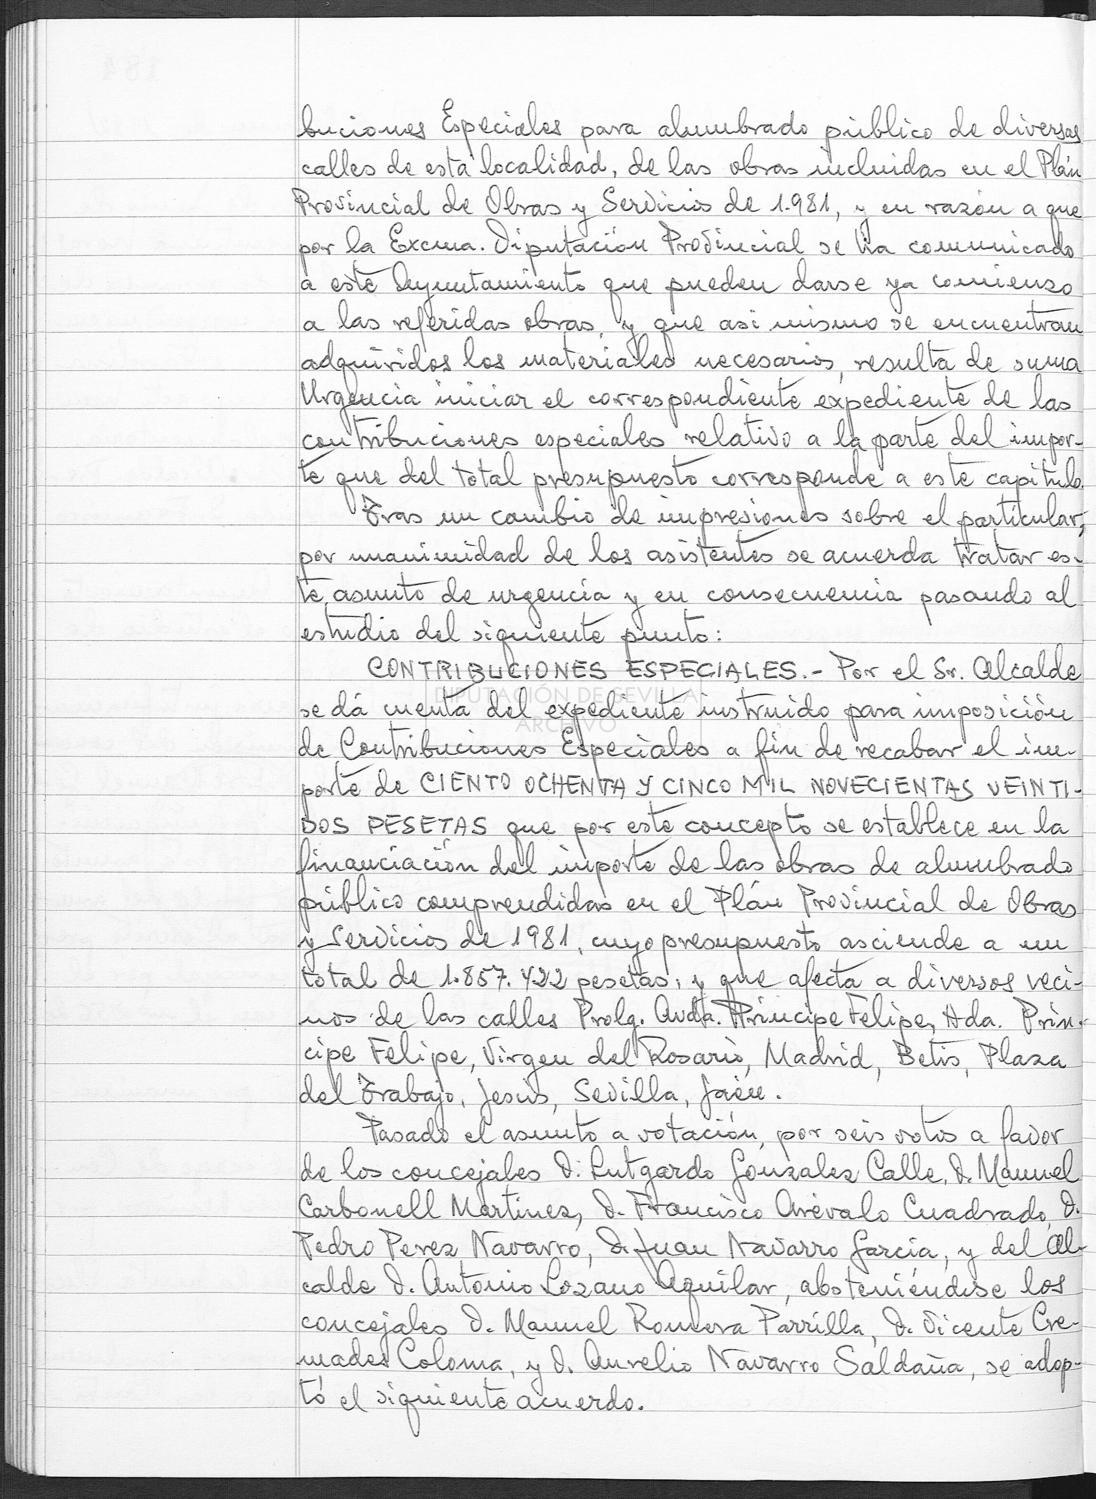 buciones Especiales para alumbrado público de diversas
calles de está localidad, de las obras incluidas en el Plán
Provincial de Obras y Servicios de 1.981, y en razón a que
por la Excma. Diputación Provincial se ha comunicado
a esté Ayuntamiento que pueden darse ya comienzo
a las referidas obras, y que asi mismo se encuentran
adquiridos los materiales necesarios, resulta de suma
Urgencia iniciar el correspondiente expediente de las
contribuciones especiales relativo a la parte del impor-
te que del total presupuesto corresponde a este capitulo.
Tras un cambio de impresiones sobre el particular,
por unanimidad de los asistentes se acuerda tratar es-
te asunto de urgencia y en consecuencia pasando al
estudio del siguiente punto:
CONTRIBUCIONES ESPECIALES.- Por el Sr. Alcalde
DIPUTACIÓN DE SEVILLA
se dá cuenta del expediente instruido para imposición
ARCHIVO
de Contribuciones Especiales a fin de recabar el im-
porte de CIENTO OCHENTA Y CINCO MIL NOVECIENTAS VEINTI-
DOS PESETAS que por este concepto se establece en la
financiación del importe de las obras de alumbrado
público comprendidas en el Plán Provincial de Obras
y Servicios de 1981, cuyo presupuesto asciende a un
total de 1.857.422 pesetas, y que afecta a diversos veci-
nos de las calles Prolg. Avda. Principe Felipe, Hda. Prin-
cipe Felipe, Virgen del Rosario, Madrid, Betis, Plaza
del Trabajo, Jesús, Sevilla, Jaén.
Pasado el asunto a votación, por seis votos a favor
de los concejales D. Lutgardo Gonzalez Calle, D. Manuel
Carbonell Martinez, D. Francisco Arévalo Cuadrado, D.
Pedro Perez Navarro, D. Juan Navarro Garcia, y del Al-
calde D. Antonio Lozano Aguilar, absteniéndose los
concejales D. Manuel Romera Parrilla, D. Vicente Cre-
mades Coloma, y D. Aurelio Navarro Saldaña, se adop-
tó el siguiente acuerdo.